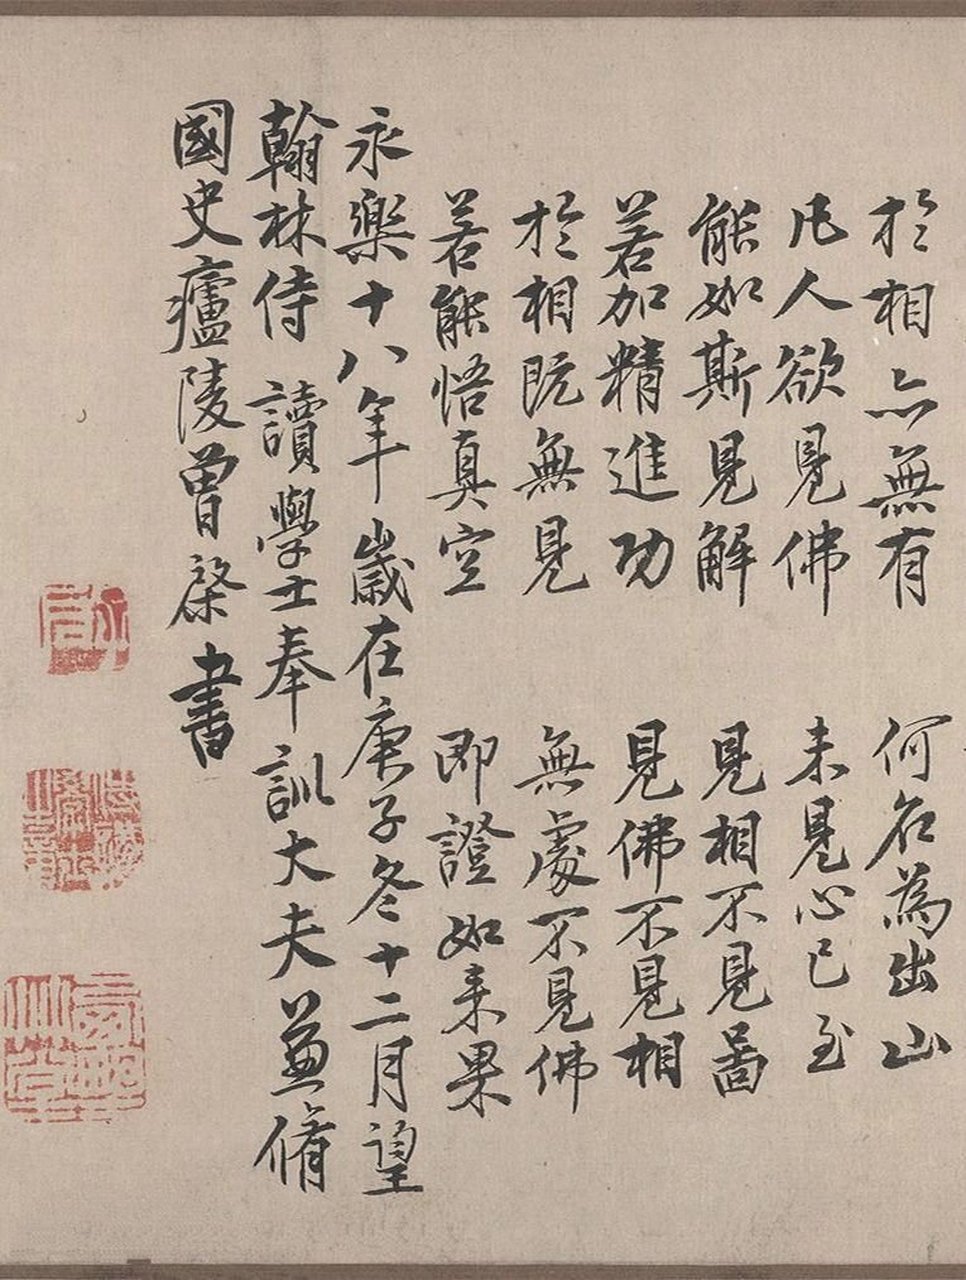 於相亦無有 何名為出山
凡人欲見佛 未見心已至
能如斯見解 見相不見啚
若加精進功 見佛不見相
於相既無見 無處不見佛
若能悟真空 即證如来果
永樂十八年歲在庚子冬十二月望
翰林侍讀學士奉訓大夫兼脩
國史廬陵曽棨書